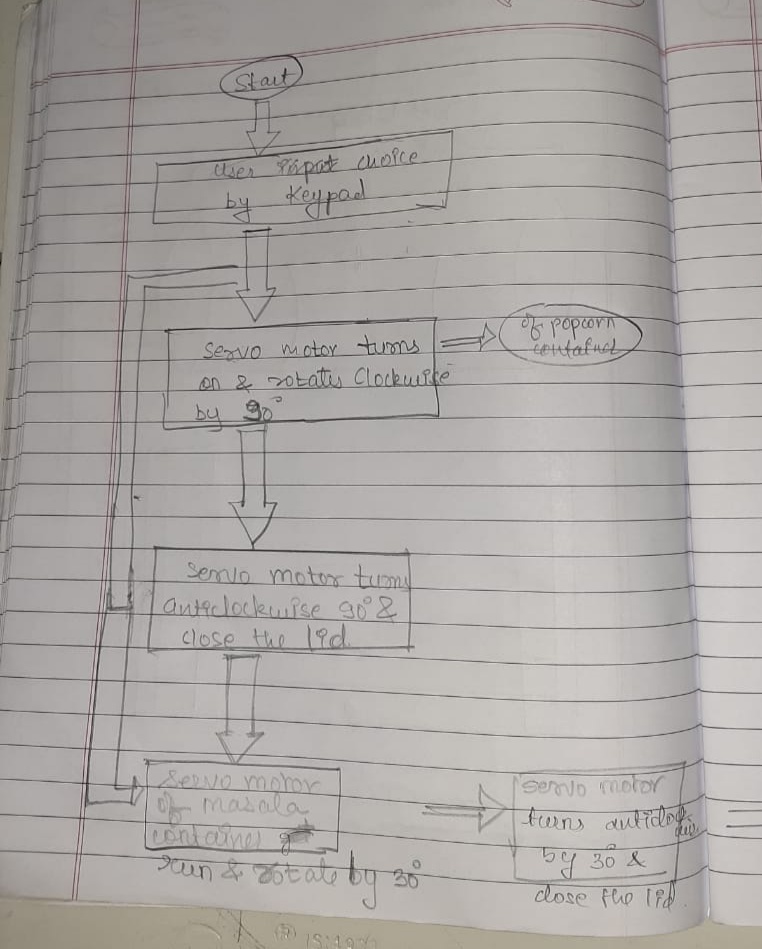 Start
User input choice
by keypad
Servo motor turns
on & rotates Clockwise
by 90°
of popcorn
Servo motor turns
anticlockwise 90° &
close the lid.
Servo motor
of masala
container
run & rotate by 30°
servo motor
turns
by 30° &
close the lid.